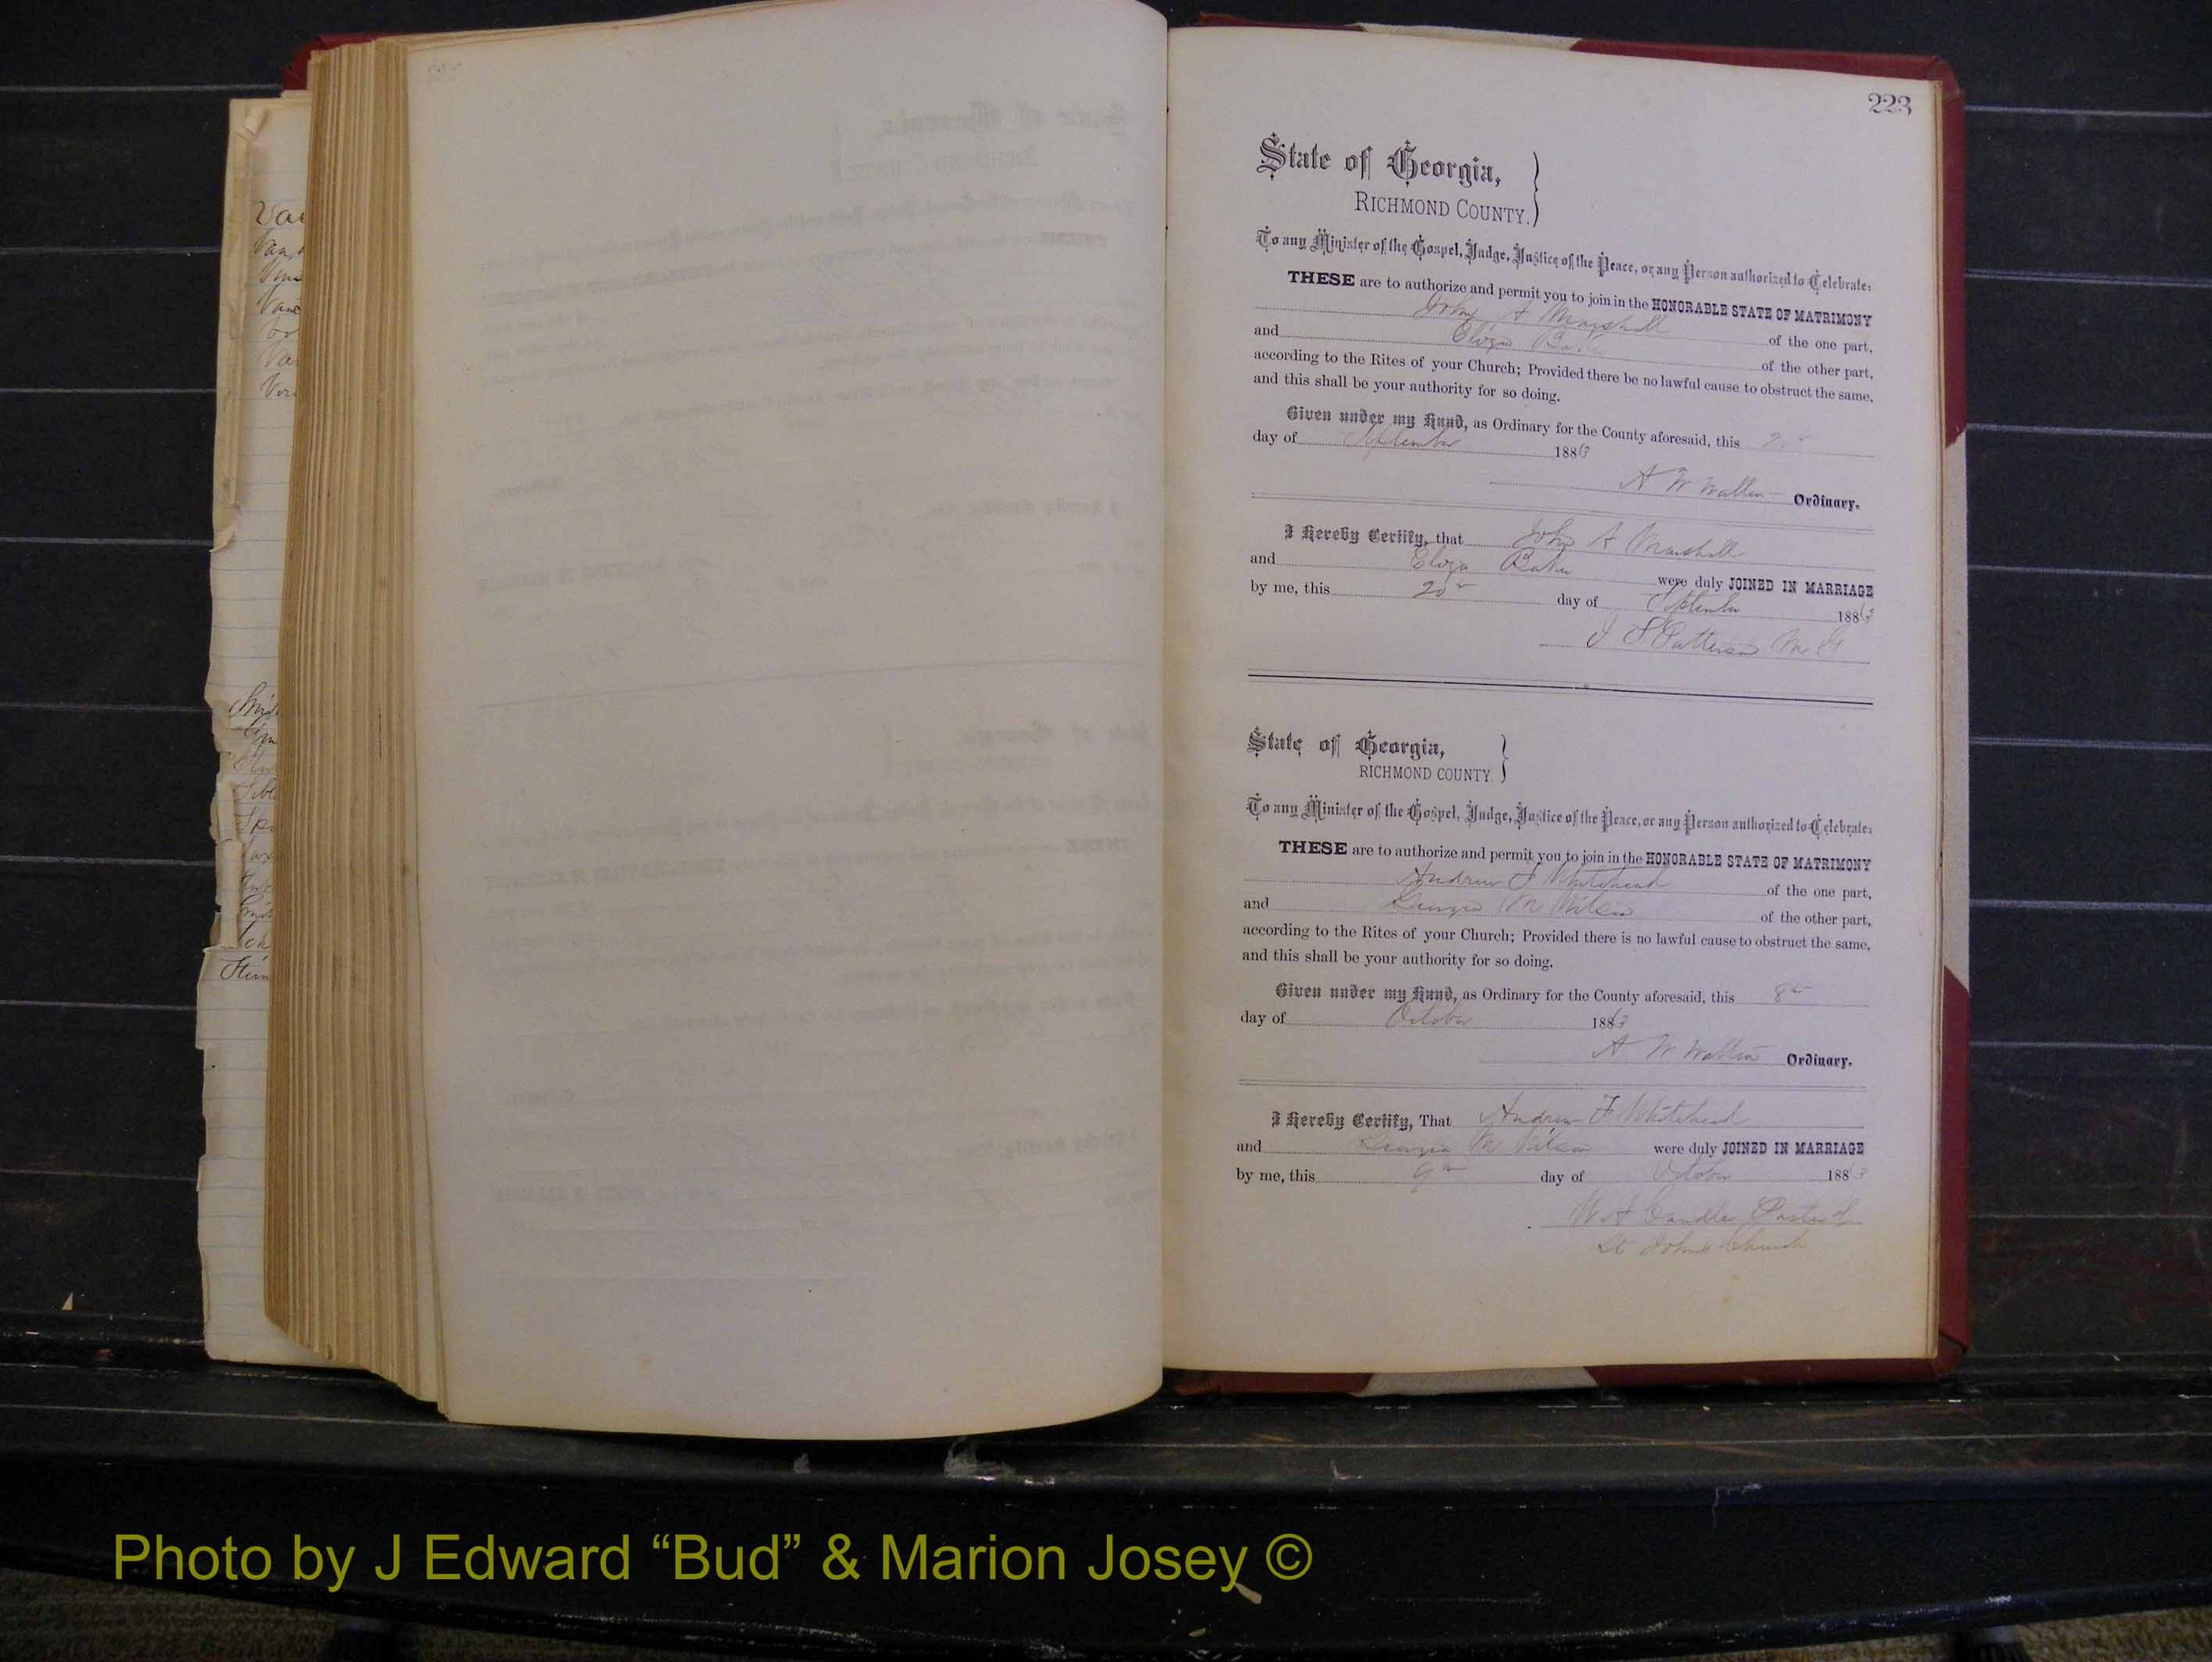 223
State of Georgia,
RICHMOND COUNTY.
To any Minister of the Gospel, Judge, Justice of the Peace, or any Person authorized to Celebrate:
THESE are to authorize and permit you to join in the HONORABLE STATE OF MATRIMONY
John A Marshall of the one part,
and Eloza Baker of the other part,
according to the Rites of your Church; Provided there be no lawful cause to obstruct the same,
and this shall be your authority for so doing.
Given under my Hand, as Ordinary for the County aforesaid, this
day of September 1883
A W Walton Ordinary.
I Hereby Certify, that John A Marshall
and Eloza Baker were duly JOINED IN MARRIAGE
by me, this 20th day of September 1883
J S Patterson M G
State of Georgia,
RICHMOND COUNTY.
To any Minister of the Gospel, Judge, Justice of the Peace, or any Person authorized to Celebrate:
THESE are to authorize and permit you to join in the HONORABLE STATE OF MATRIMONY
Andrew F Whitehead of the one part,
and Georgia M Wilson of the other part,
according to the Rites of your Church; Provided there is no lawful cause to obstruct the same,
and this shall be your authority for so doing.
Given under my Hand, as Ordinary for the County aforesaid, this 8th
day of October 1883
A W Walton Ordinary.
I Hereby Certify, That Andrew F Whitehead
and Georgia M Wilson were duly JOINED IN MARRIAGE
by me, this 9th day of October 1883
W A Candler Pastor of
St Johns Church
Photo by J Edward “Bud” & Marion Josey ©